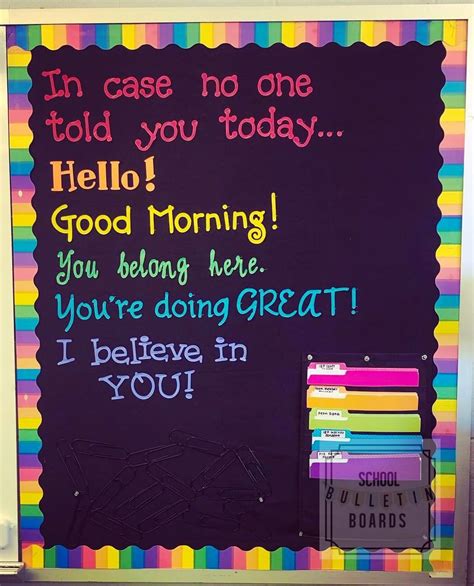 In case no one
told you today...
Hello!
Good Morning!
You belong here.
You're doing GREAT!
I believe in
YOU!
SCHOOL
BULLETIN
BOARDS